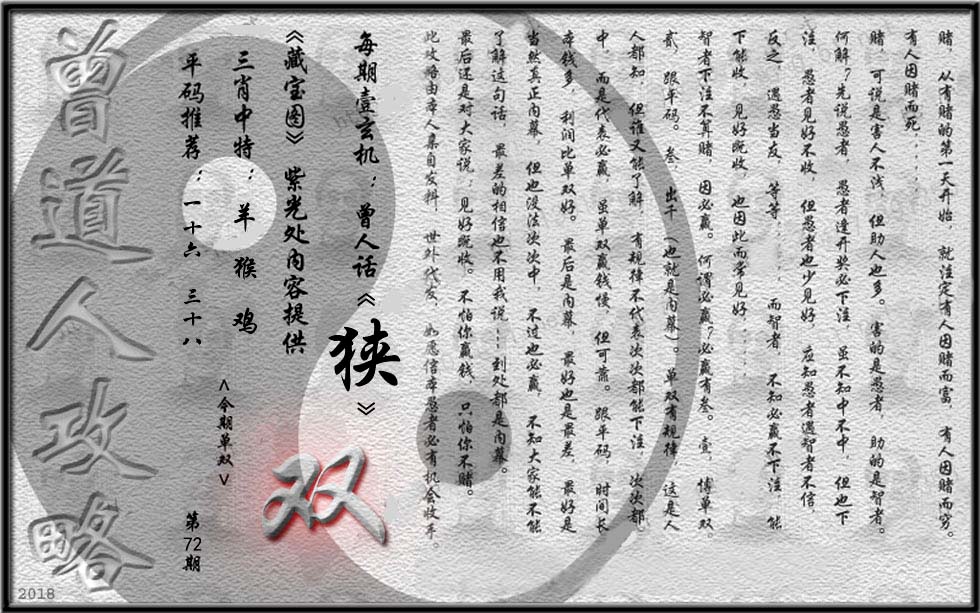 赌，从有赌的第一天开始，就注定有人因赌而富，有人因赌而穷。
有人因赌而死．．．．．．
赌，可说是害人不浅，但助人也多。害的是愚者，助的是智者。
何解？先说愚者，愚者逢开奖必下注，虽不知中不中，但也下
注，愚者见好不收，但愚者也少见好，应知愚者遇智者不信，
反之，遇愚当友，等等．．．．．．而智者，不知必赢不下注，能
下能收，见好既收，也因此而常见好．．．．．．
智者下注不算赌，因必赢。何谓必赢？必赢有叁。壹，博单双，
贰，跟平码。叁，出千（也就是内幕）。单双有规律，这是人
人都知，但谁又能了解，有规律不代表次次都能下注，次次都
中，而是代表必赢，虽单双赢钱慢，但可靠。跟平码，时间长，
本钱多，利润比单双好。最后是内幕，最好也是最差，最好是
当然真正内幕，但也没法次次中，不过也必赢，不知大家能不能
了解这句话，最差的相信也不用我说……到处都是内幕。
最后还是对大家说：见好既收。不怕你赢钱，只怕你不赌。
此攻略由本人集自发料，世外代发，如愿信本愚者必有机会收手。
每期壹玄机：曾人话《狭》
《藏宝图》紫光处内容提供
三肖中特：羊 猴 鸡
平码推荐：一十六 三十八
<今期单双>
双
第72期
曾道人攻略
2018